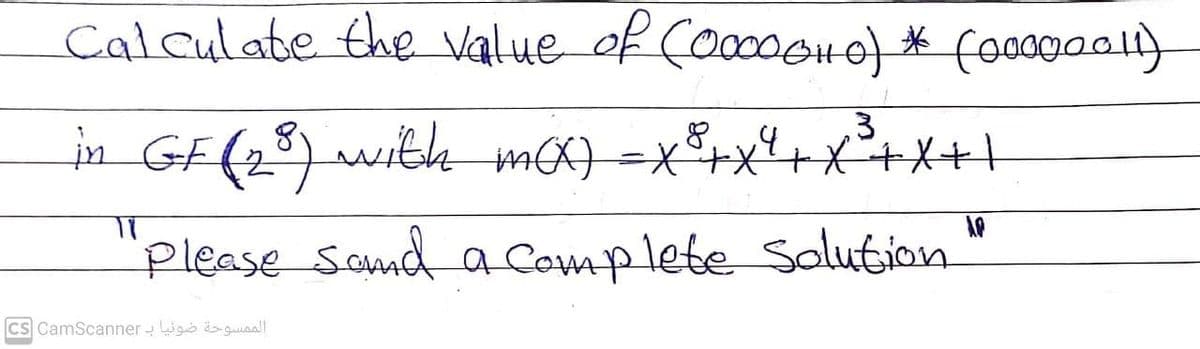 Calculate the value of (00000110) * (00000011)
in GF(2⁸) with m(x) = x⁸+x⁴+x³+x+1
"please sand a complete solution"
CS CamScanner الممسوحة ضوئيا بـ